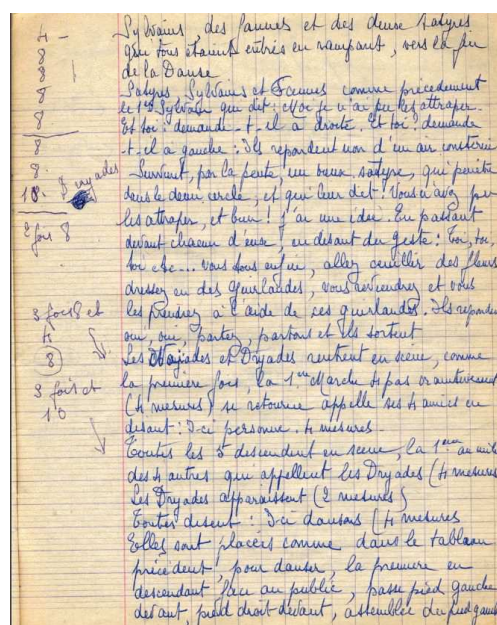 4 -
8
8
8
8
8
8.
10. 8 ryades
2 fois 8
3 fois 8 et
4
8
3 fois et
10
Sylvains, des faunes et des deuse satyres
que tous étaient entrés en rampant, vers la fin
de la Danse
Satyres, Sylvains et Faunes comme precedement
le 1er Sylvain qui dit: Moi je n'ai pu les attraper.
Et toi: demande-t-il à droite. Et toi? demande
-t-il à gauche: Ils repondent non d'un air contrarié
Survient, par la pente, un vieux satyre, qui penètre
dans le demi cercle, et qui leur dit: Vous n'avez pu
les attraper, et bien! j'ai une idée. En passant
devant chacun d'eux, en disant du geste: Toi, toi,
toi etc... vous tous enfin, allez cueillir des fleurs
dressez en des guirlandes, vous reviendrez et vous
les prendrez à l'aide de ces guirlandes. Ils reponden
oui, oui, partez, partons et ils sortent
Les Naïades et Dryades rentrent en scène, comme
la première fois, la 1ère Marche 4 pas
(4 mesures) se retourne appelle ses 4 amies en
disant: Ici personne. 4 mesures
Toutes les 5 descendent en scène, la 1ère au milie
des 4 autres qui appellent les Dryades (4 mesures
Les Dryades apparaissent (2 mesures)
Toutes disent: Ici dansons (4 mesures
Elles sont placées comme dans le tableau
précédent, pour danser, la première en
descendant face au public, passe pied gauche
devant, pied droit devant, assemblée du pied gauc